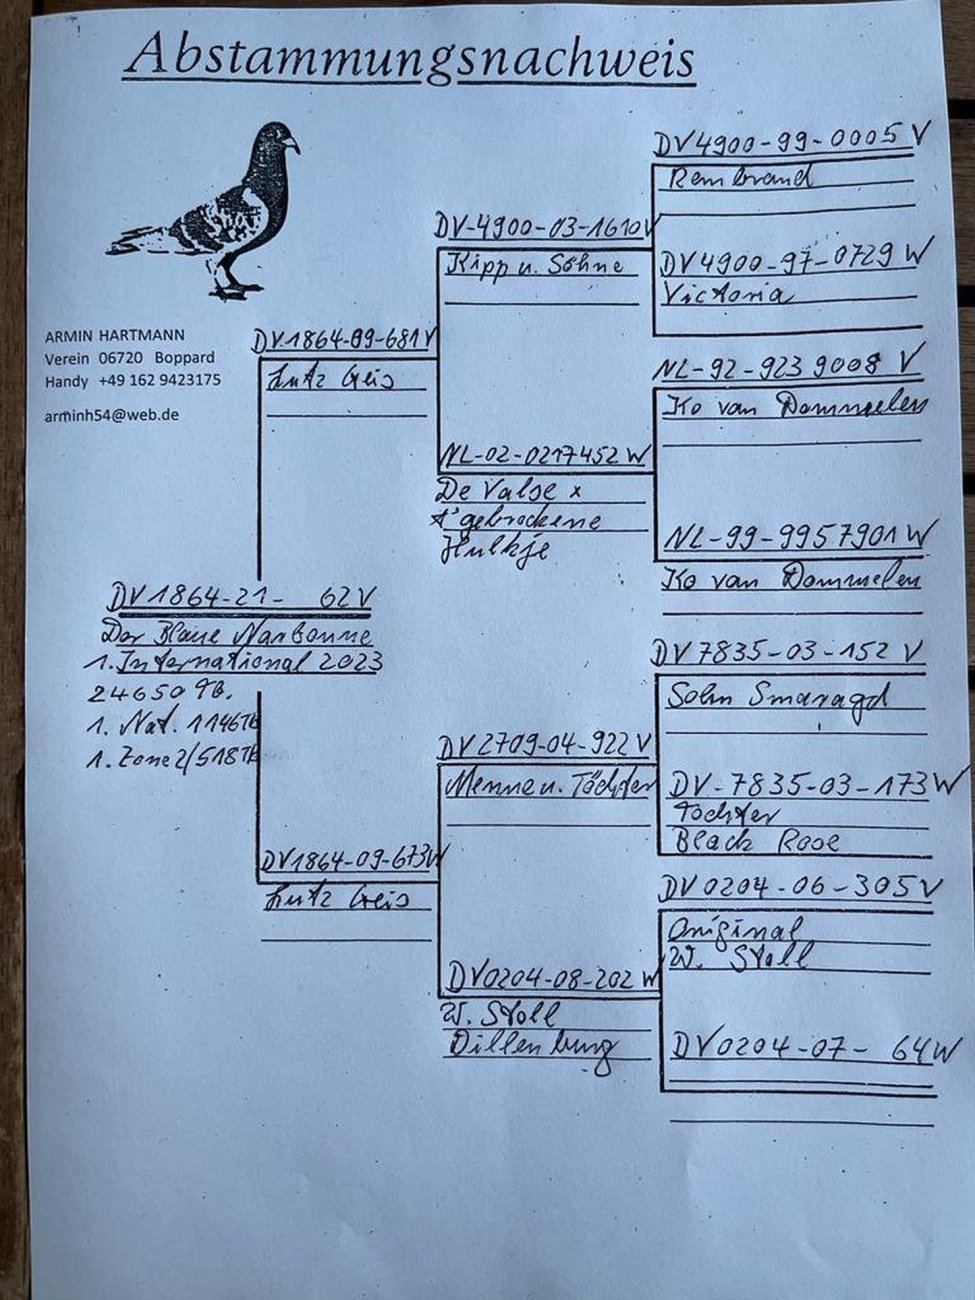 Abstammungsnachweis
ARMIN HARTMANN
Verein 06720 Boppard
Handy +49 162 9423175
arminh54@web.de
DV1864-21- 62V
Der Blaue Narbonne
1. International 2023
24650 TB.
1. Nat. 1146TB
1. Zone2/518TB
DV1864-09-681V
Lutz Geis
DV1864-09-673W
Lutz Geis
DV-4900-03-1610V
Kipp u. Söhne
NL-02-0217452 W
De Valse x
t'gebrockene
Hulkje
DV2709-04-922V
Menne u. Töchter
DV0204-08-202 W
W. Stoll
Dillenburg
DV4900-99-0005V
Rembrand
DV4900-97-0729 W
Victoria
NL-92-923 9008 V
Ko van Dommelen
NL-99-9957901 W
Ko van Dommelen
DV7835-03-152 V
Sohn Smaragd
DV-7835-03-173W
Tochter
Black Rose
DV0204-06-305V
Original
W. Stoll
DV0204-07- 64W